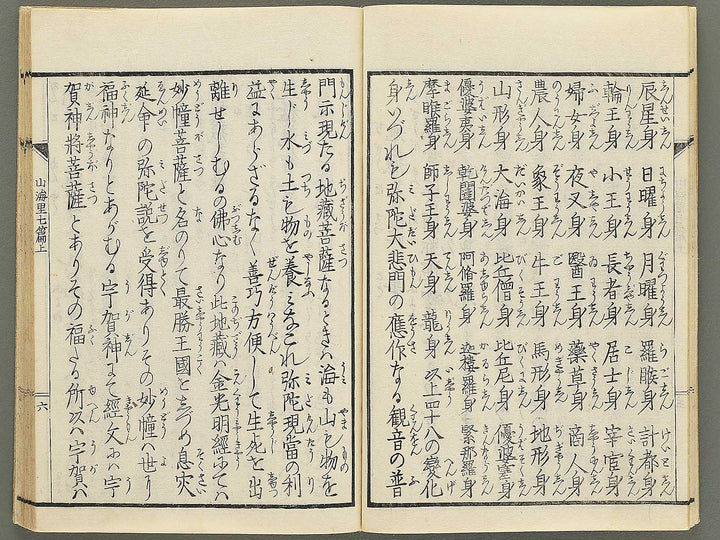 辰星身 日曜身 月曜身 羅睺身 計都身
輪王身 小王身 長者身 居士身 宰官身
婦女身 夜叉身 醫王身 藥草身 商人身
農人身 象王身 牛王身 馬形身 地形身
山形身 大海身 比丘僧身 比丘尼身 優婆塞身
優婆夷身 乾闥婆身 阿脩羅身 迦樓羅身 緊那羅身
摩睺羅身 師子王身 天身 龍身 以上四十八の變化
身いづれも弥陀大悲門の應作なる観音の普
門示現たる地藏菩薩なるときハ海も山も物を
生じ水も土も物を養ミなこれ弥陀現當の利
益にあらざるなく善巧方便して生死を出
離せしむるの佛心なり此地藏ハ金光明經にてハ
妙幢菩薩と名のりて最勝王國としづめ息災
延命の弥陀説を受得ありその妙幢ハ世に
福神なりとあがむる宇賀神にて經文にハ宇
賀神將菩薩とありその福たる所以ハ宇賀ハ
山海里七篇上
六